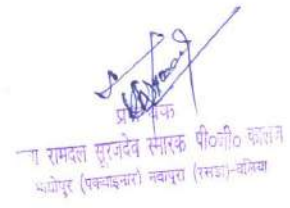 रामदल सूरजदेव स्मारक पी०जी० कालेज
(पकवाइनार) नवापुरा (रसड़ा)-बलिया